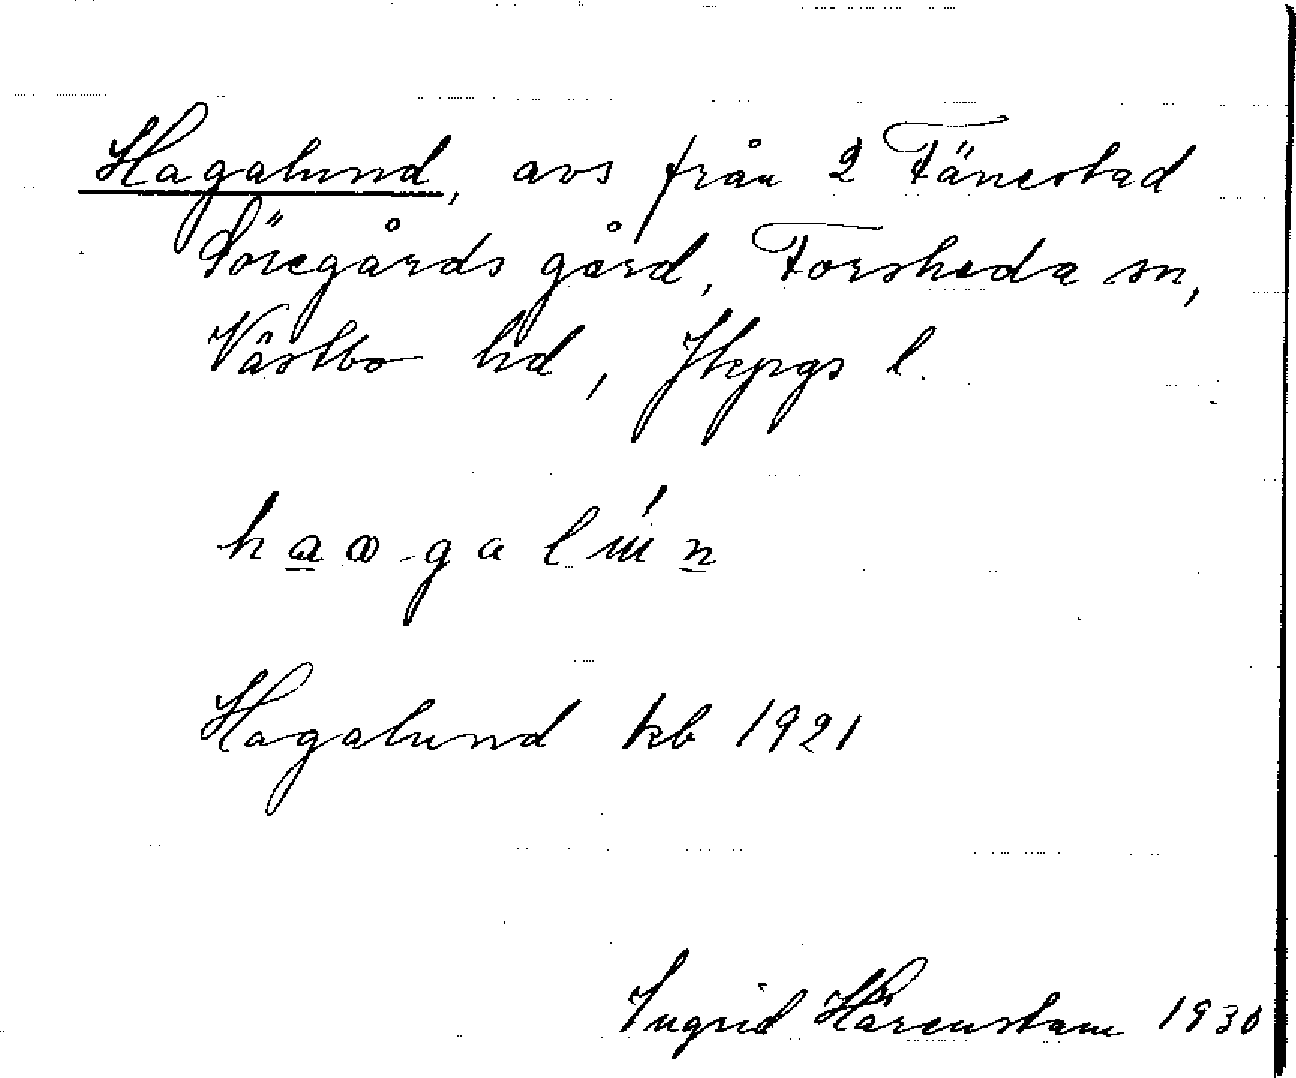 Hagalund, avs från 2 Fänestad
Söregårds gård, Forsheda sn,
Västbo hd, Jkpgs l.
Hagalund kb 1921
Ingrid Härenstam 1930